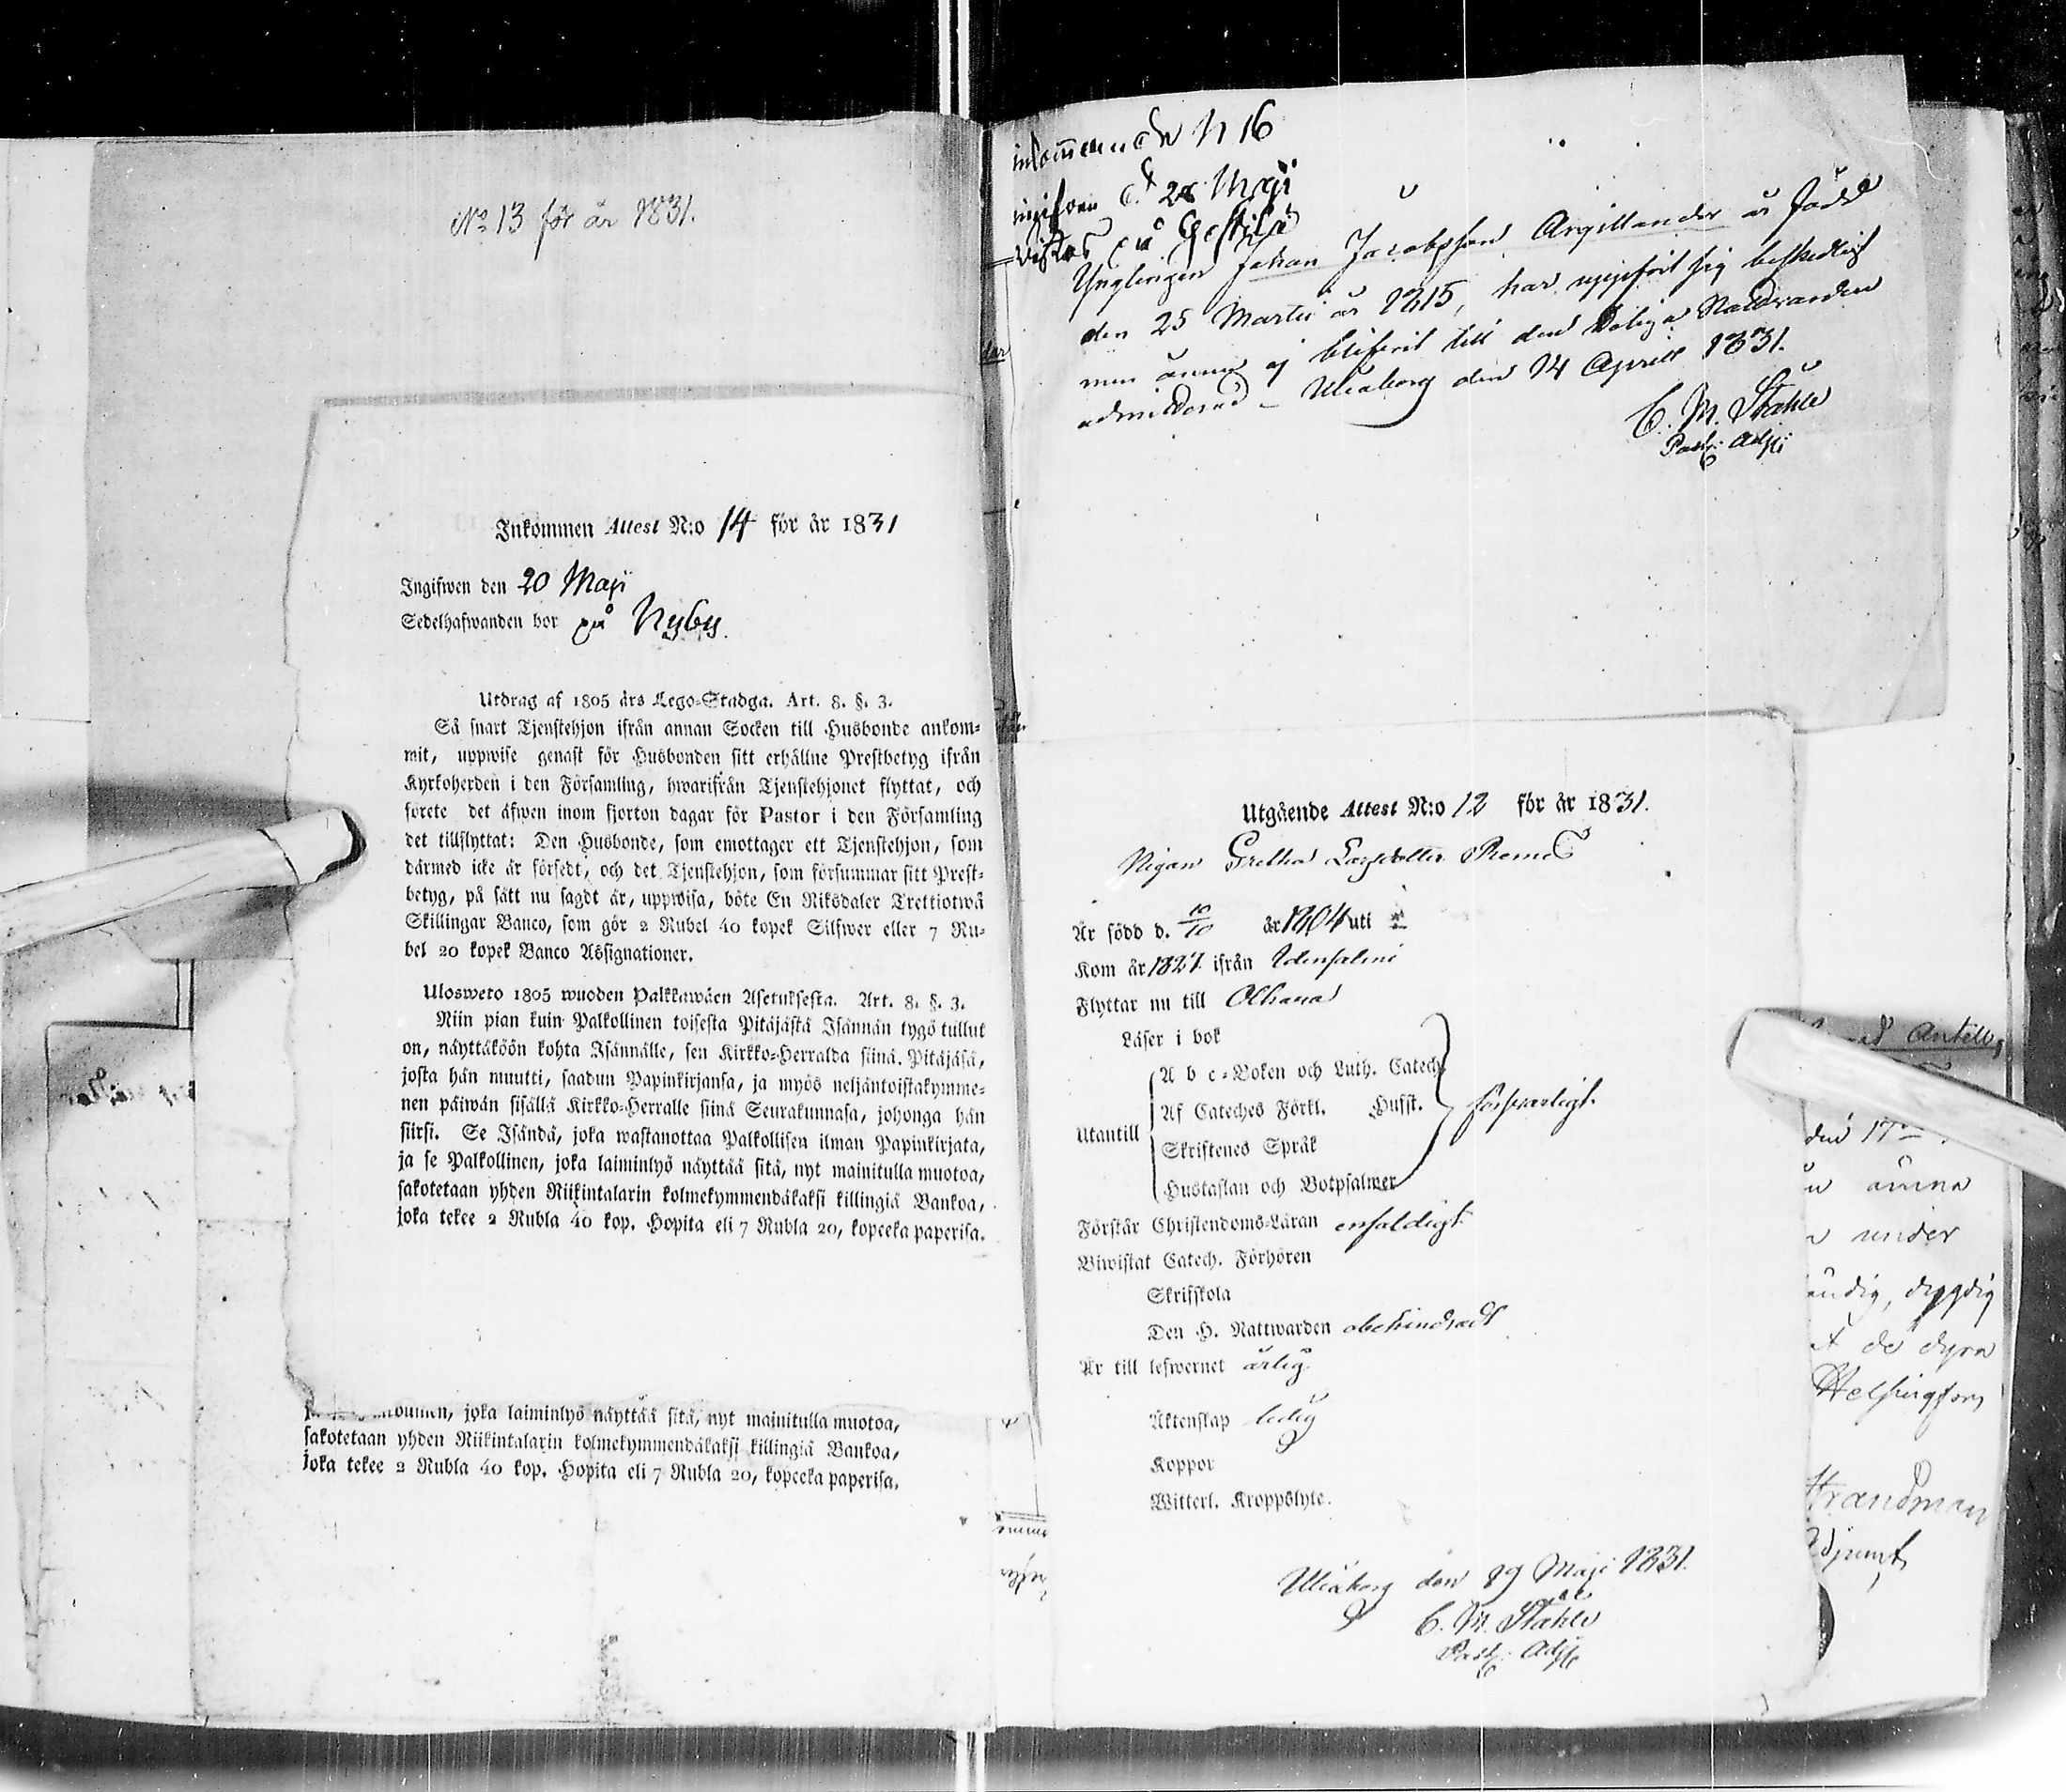 No 13 för år 1831.
Inkommen Attest N:o 14 för år 1831
Ingifwen den 20 Maji
Sedelhafwanden bor på Nyby.
Utdrag af 1805 års Lego-Stadga. Art. 8. §. 3.
Så snart Tjenstehjon ifrån annan Socken till Husbonde ankom-
mit, uppwise genast för Husbonden sitt erhållne Prestbetyg ifrån
Kyrkoherden i den Församling, hwarifrån Tjenstehjonet flyttat, och
förete det äfwen inom fjorton dagar för Pastor i den Församling
det tillflyttat: Den Husbonde, som emottager ett Tjenstehjon, som
därmed icke är försedt, och det Tjenstehjon, som försummar sitt Prest-
betyg, på sätt nu sagdt är, uppwisa, böte En Riksdaler Trettiotwå
Skillingar Banco, som gör 2 Rubel 40 kopek Silfwer eller 7 Ru-
bel 20 kopek Banco Assignationer.
Ulosweto 1805 wuoden Palkkawäen Asetuksesta. Art. 8. §. 3.
Niin pian kuin Palkollinen toisesta Pitäjästä Isännän tygö tullut
on, näyttäköön kohta Isännälle, sen Kirkko-Herralda siinä Pitäjäsä,
josta hän muutti, saadun Papinkirjansa, ja myös neljäntoistakymme-
nen päiwän sisällä Kirkko-Herralle siinä Seurakunnasa, johonga hän
siirsi. Se Isändä, joka wastanottaa Palkollisen ilman Papinkirjata,
ja se Palkollinen, joka laiminlyö näyttää sitä, nyt mainitulla muotoa,
sakotetaan yhden Riikintalarin kolmekymmendäkaksi killingiä Bankoa,
joka tekee 2 Rubla 40 kop. Hopita eli 7 Rubla 20, kopeeka paperisa.
joka laiminlyö näyttää sitä, nyt mainitulla muotoa,
sakotetaan yhden Riikintalarin kolmekymmendäkaksi killingiä Bankoa,
joka tekee 2 Rubla 40 kop. Hopita eli 7 Rubla 20, kopeeka paperisa.
N 16
d. 28 Maji
på
Ynglingen Johan Jacobsson Argillander är född
den 25 Martii år 1815, har uppfört sig beskedligt
men ännu ej blifvit till den Heliga Nattvarden
admitterad – Uleåborg den 14 Aprill 1831.
C. M. Ståhle
Past: Adj:
Utgående Attest N:o 12 för år 1831.
Pigan Gretha Larsdotter
Är född d. 10/10 år 1804 uti
Kom år 1827 ifrån Idensalmi
Flyttar nu till
Läser i bok
Utantill
A b c-Boken och Luth. Catech.
Af Cateches Förkl. Hufst.
Skriftenes Språk
Hustaflan och Botpsalmer
försvarligt.
Förstår Christendoms-Läran enfaldigt
Biwistat Catech. Förhören
Skriftskola
Den H. Nattwarden obehindradt
Är till lefwernet ärlig
Äktenskap ledig
Koppor
Witterl. Kroppslyte.
Uleåborg den 19 Maji 1831.
C. M. Ståhle
Past: Adj:
Antell,
den 17
änna
under
dygdig
de dyra
Helsingfors
Strandman
Adjunct